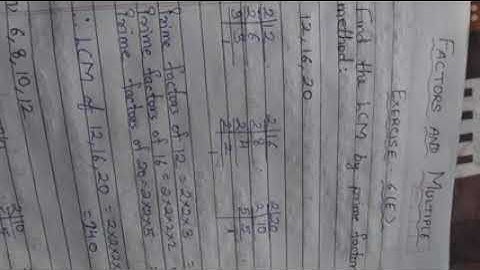 FACTORS AND MULTIPLE
EXERCISE 6(E)
Find the LCM by prime factor
method:
12, 16, 20
2|12 2|16 2|20
2|6 2|8 2|10
3|3 2|4 5|5
1 2|2 1
1
Prime factors of 12 = 2x2x3 =
Prime factors of 16 = 2x2x2x2
Prime factors of 20 = 2x2x5
∴ LCM of 12, 16, 20 = 2x2x2x
= 240
6, 8, 10, 12
2|10
5|5